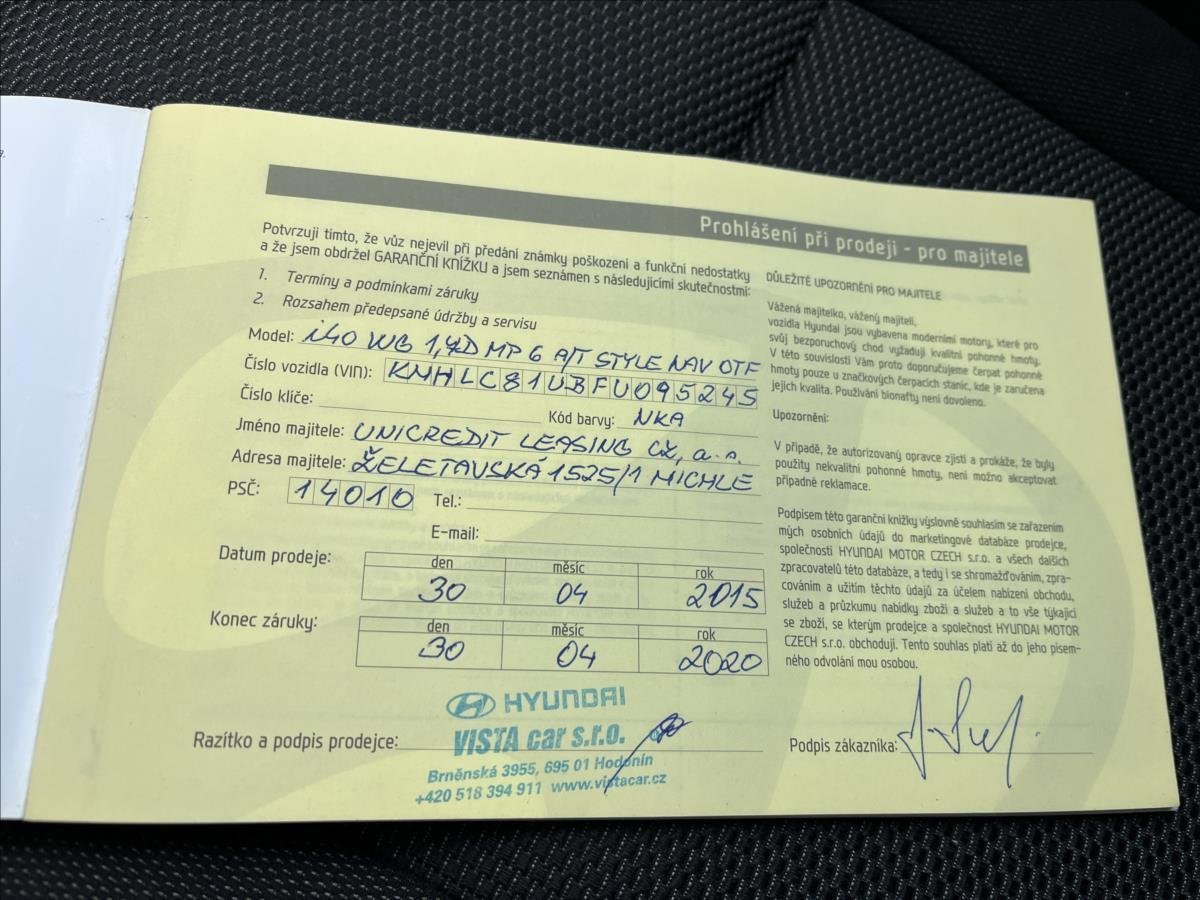 Prohlášení při prodeji - pro majitele
Potvrzuji tímto, že vůz nejevil při předání známky poškození a funkční nedostatky
a že jsem obdržel GARANČNÍ KNÍŽKU a jsem seznámen s následujícími skutečnostmi:
1. Termíny a podmínkami záruky
2. Rozsahem předepsané údržby a servisu
Model: i40 WG 1,7D MP 6 A/T STYLE NAV OTF
Číslo vozidla (VIN): KMHLC81UBFU095245
Číslo klíče:
Kód barvy: NKA
Jméno majitele: UNICREDIT LEASING CZ, a.s.
Adresa majitele: ŽELETAVSKÁ 1525/1 MICHLE
PSČ: 14010 Tel.:
E-mail:
Datum prodeje: den měsíc rok
30 04 2015
Konec záruky: den měsíc rok
30 04 2020
Razítko a podpis prodejce:
HYUNDAI
VISTA car s.r.o.
Brněnská 3955, 695 01 Hodonín
+420 518 394 911 www.vistacar.cz
DŮLEŽITÉ UPOZORNĚNÍ PRO MAJITELE
Vážená majitelko, vážený majiteli,
vozidla Hyundai jsou vybavena moderními motory, které pro
svůj bezporuchový chod vyžadují kvalitní pohonné hmoty.
V této souvislosti Vám proto doporučujeme čerpat pohonné
hmoty pouze u značkových čerpacích stanic, kde je zaručena
jejich kvalita. Používání bionafty není dovoleno.
Upozornění:
V případě, že autorizovaný opravce zjistí a prokáže, že byly
použity nekvalitní pohonné hmoty, není možno akceptovat
případné reklamace.
Podpisem této garanční knížky výslovně souhlasím se zařazením
mých osobních údajů do marketingové databáze prodejce,
společnosti HYUNDAI MOTOR CZECH s.r.o. a všech dalších
zpracovatelů této databáze, a tedy i se shromažďováním, zpra-
cováním a užitím těchto údajů za účelem nabízení obchodu,
služeb a průzkumu nabídky zboží a služeb a to vše týkající
se zboží, se kterým prodejce a společnost HYUNDAI MOTOR
CZECH s.r.o. obchodují. Tento souhlas platí až do jeho písem-
ného odvolání mou osobou.
Podpis zákazníka: